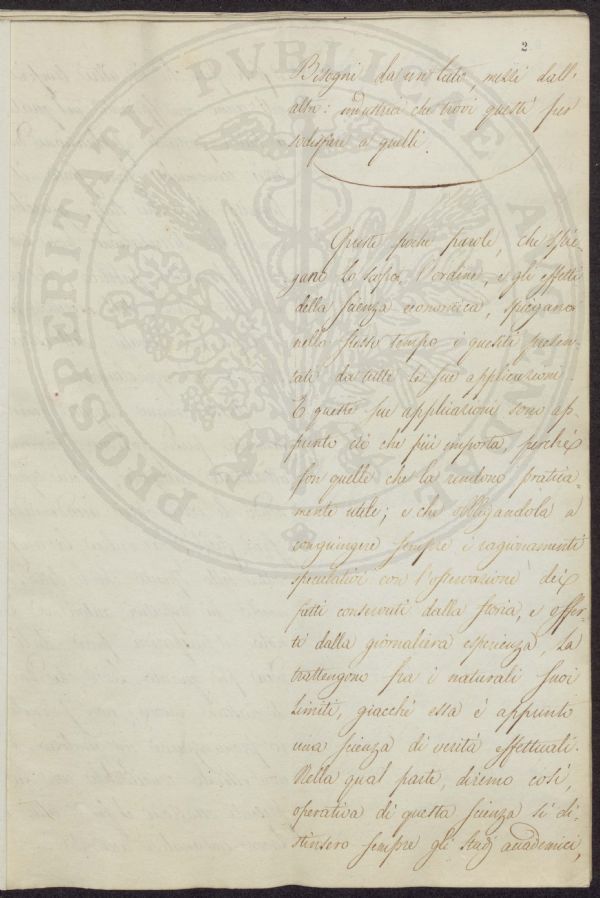 2
Bisogni da un lato, mezzi dall'
altro: industria che trovi questi per
sodisfare a quelli.
Queste poche parole, che spie-
gano lo scopo, l'ordine, e gli effetti
della scienza economica, spiegano
nello stesso tempo i quesiti presen-
tati da tutte le sue applicazioni.
E queste sue applicazioni sono ap-
punto ciò che più importa, perché
son quelle che la rendono pratica-
mente utile; e che obbligandola a
congiungere sempre i ragionamenti
speculativi con l'osservazione dei
fatti conservati dalla storia, e offer-
ti dalla giornaliera esperienza, la
trattengono fra i naturali suoi
limiti, giacché essa è appunto
una scienza di verità effettuali.
Nella qual parte, diremo così,
operativa di questa scienza si di-
stinsero sempre gli studj accademici,
PROSPERITATI PUBLICAE AUGENDAE